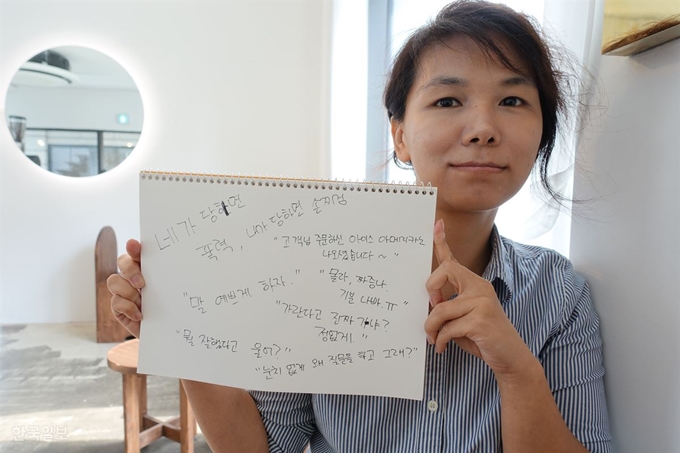 네가 당하면
폭력, 내가 당하면 솔직함
"고객님 주문하신 아이스 아메리카노
나오셨습니다~"
"말 예쁘게 하자."
"몰라, 짜증나.
기분 나빠.ㅠ"
"가란다고 진짜 가냐?
정없게."
"뭘 잘했다고 울어?"
"눈치 없게 왜 질문을 하고 그래?"
한국일보